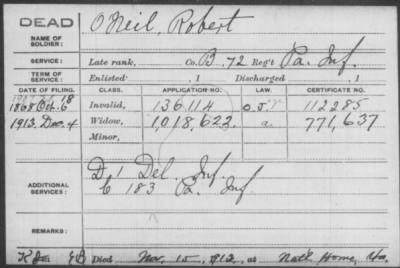 DEAD
O'Neil, Robert
NAME OF
SOLDIER:
SERVICE:
Late rank, Co. B. 72 Reg't Pa. Inf.
TERM OF
SERVICE:
Enlisted , 1 Discharged , 1
DATE OF FILING. CLASS. APPLICATION NO. LAW. CERTIFICATE NO.
1868 Oct. 6 Invalid, 136114 O.J. 112285
1913. Dec. 4 Widow, 1,018,623. a. 771,637
Minor,
ADDITIONAL
SERVICES:
D, 1 Del. Inf.
183 Pa. Inf
REMARKS:
Died Nov. 15, 1912, at Nat'l Home,